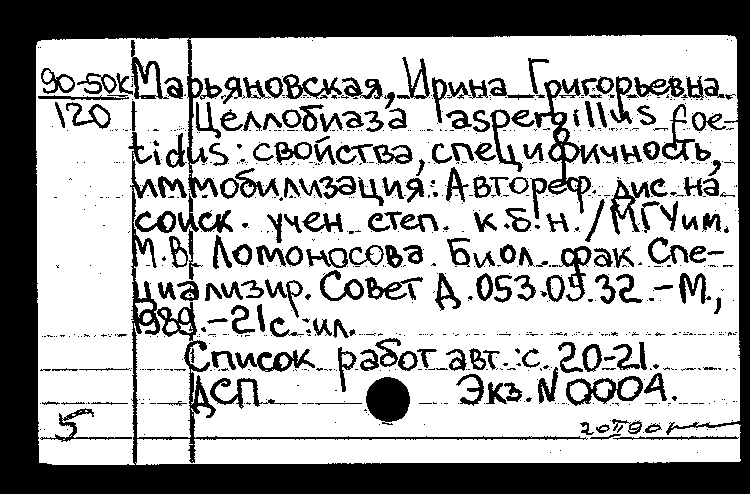 90-50к Марьяновская, Ирина Григорьевна
120 Целлобиаза aspergillus foe-
tidus: свойства, специфичность,
иммобилизация: Автореф. дис. на
соиск. учен. степ. к.б.н. / МГУ им.
М.В. Ломоносова. Биол. фак. Спе-
циализир. Совет Д.053.05.32. - М.,
1989. - 21 с. : ил.
Список работ авт.: с. 20-21.
ДСП. Экз. N 0004.
5